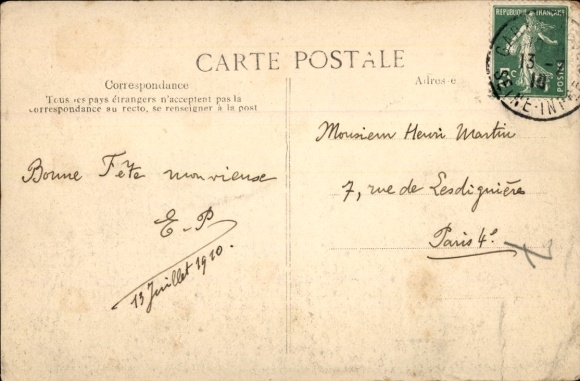 CARTE POSTALE
Correspondance
Tous les pays étrangers n'acceptent pas la
correspondance au recto, se renseigner à la post
Bonne Fête mon vieuse
E-P
13 Juillet 1910.
REPUBLIQUE FRANÇAISE
POSTES
13
10
SEINE-INF
Adresse
Monsieur Henri Martin
7, rue de Lesdiguières
Paris 4e